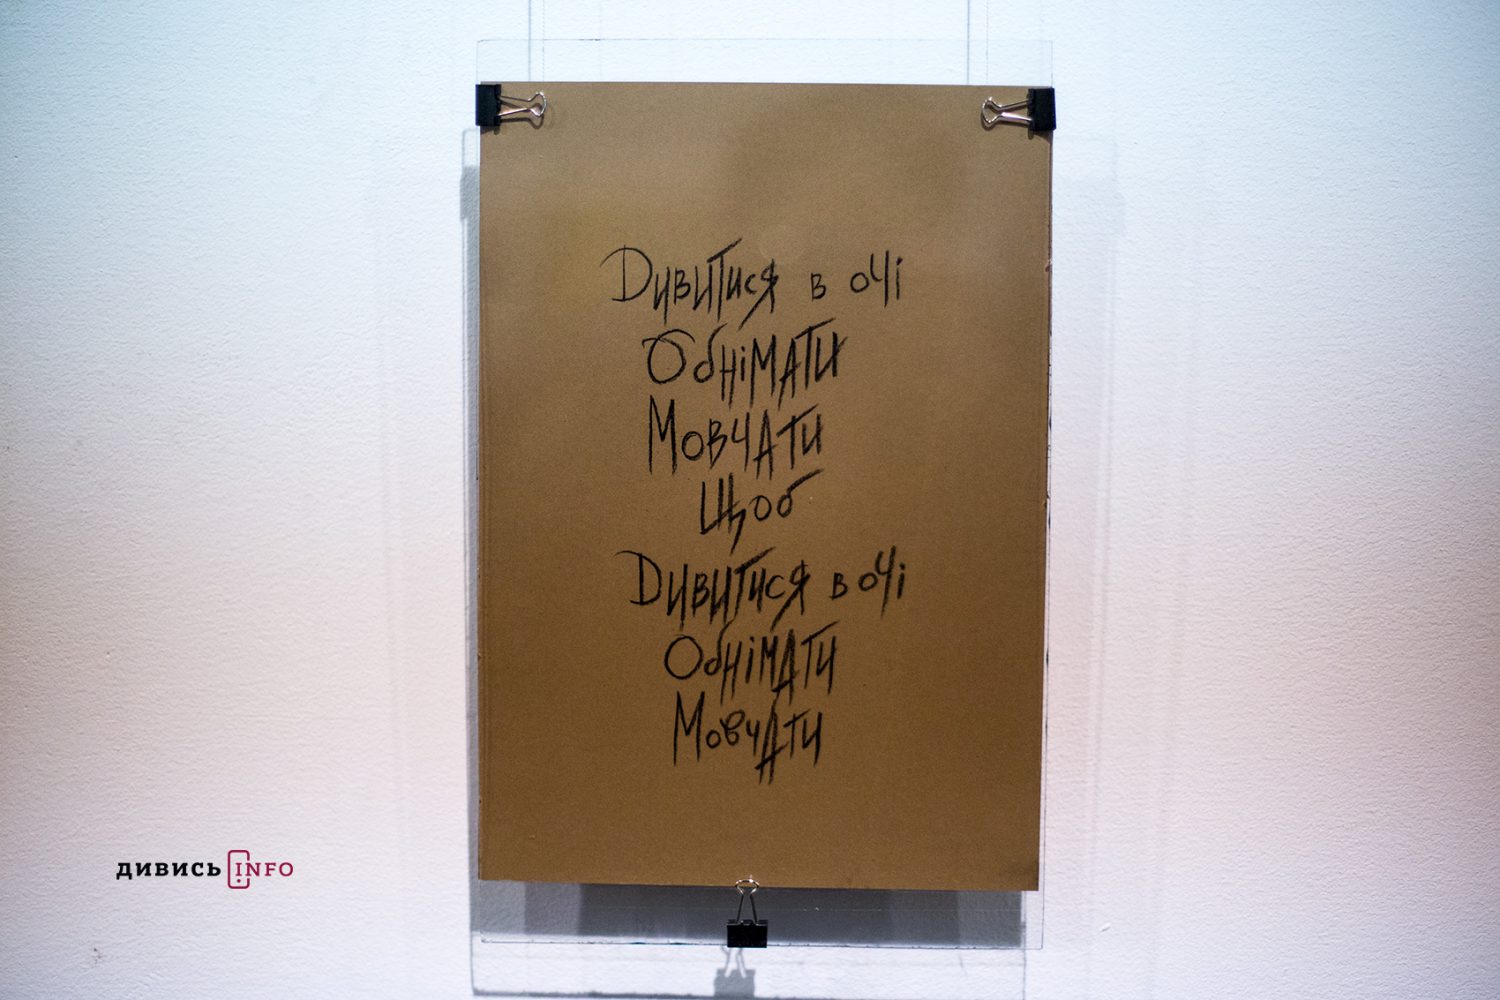 Дивитися в очі
Обнімати
Мовчати
Щоб
Дивитися в очі
Обнімати
Мовчати
дивись INFO